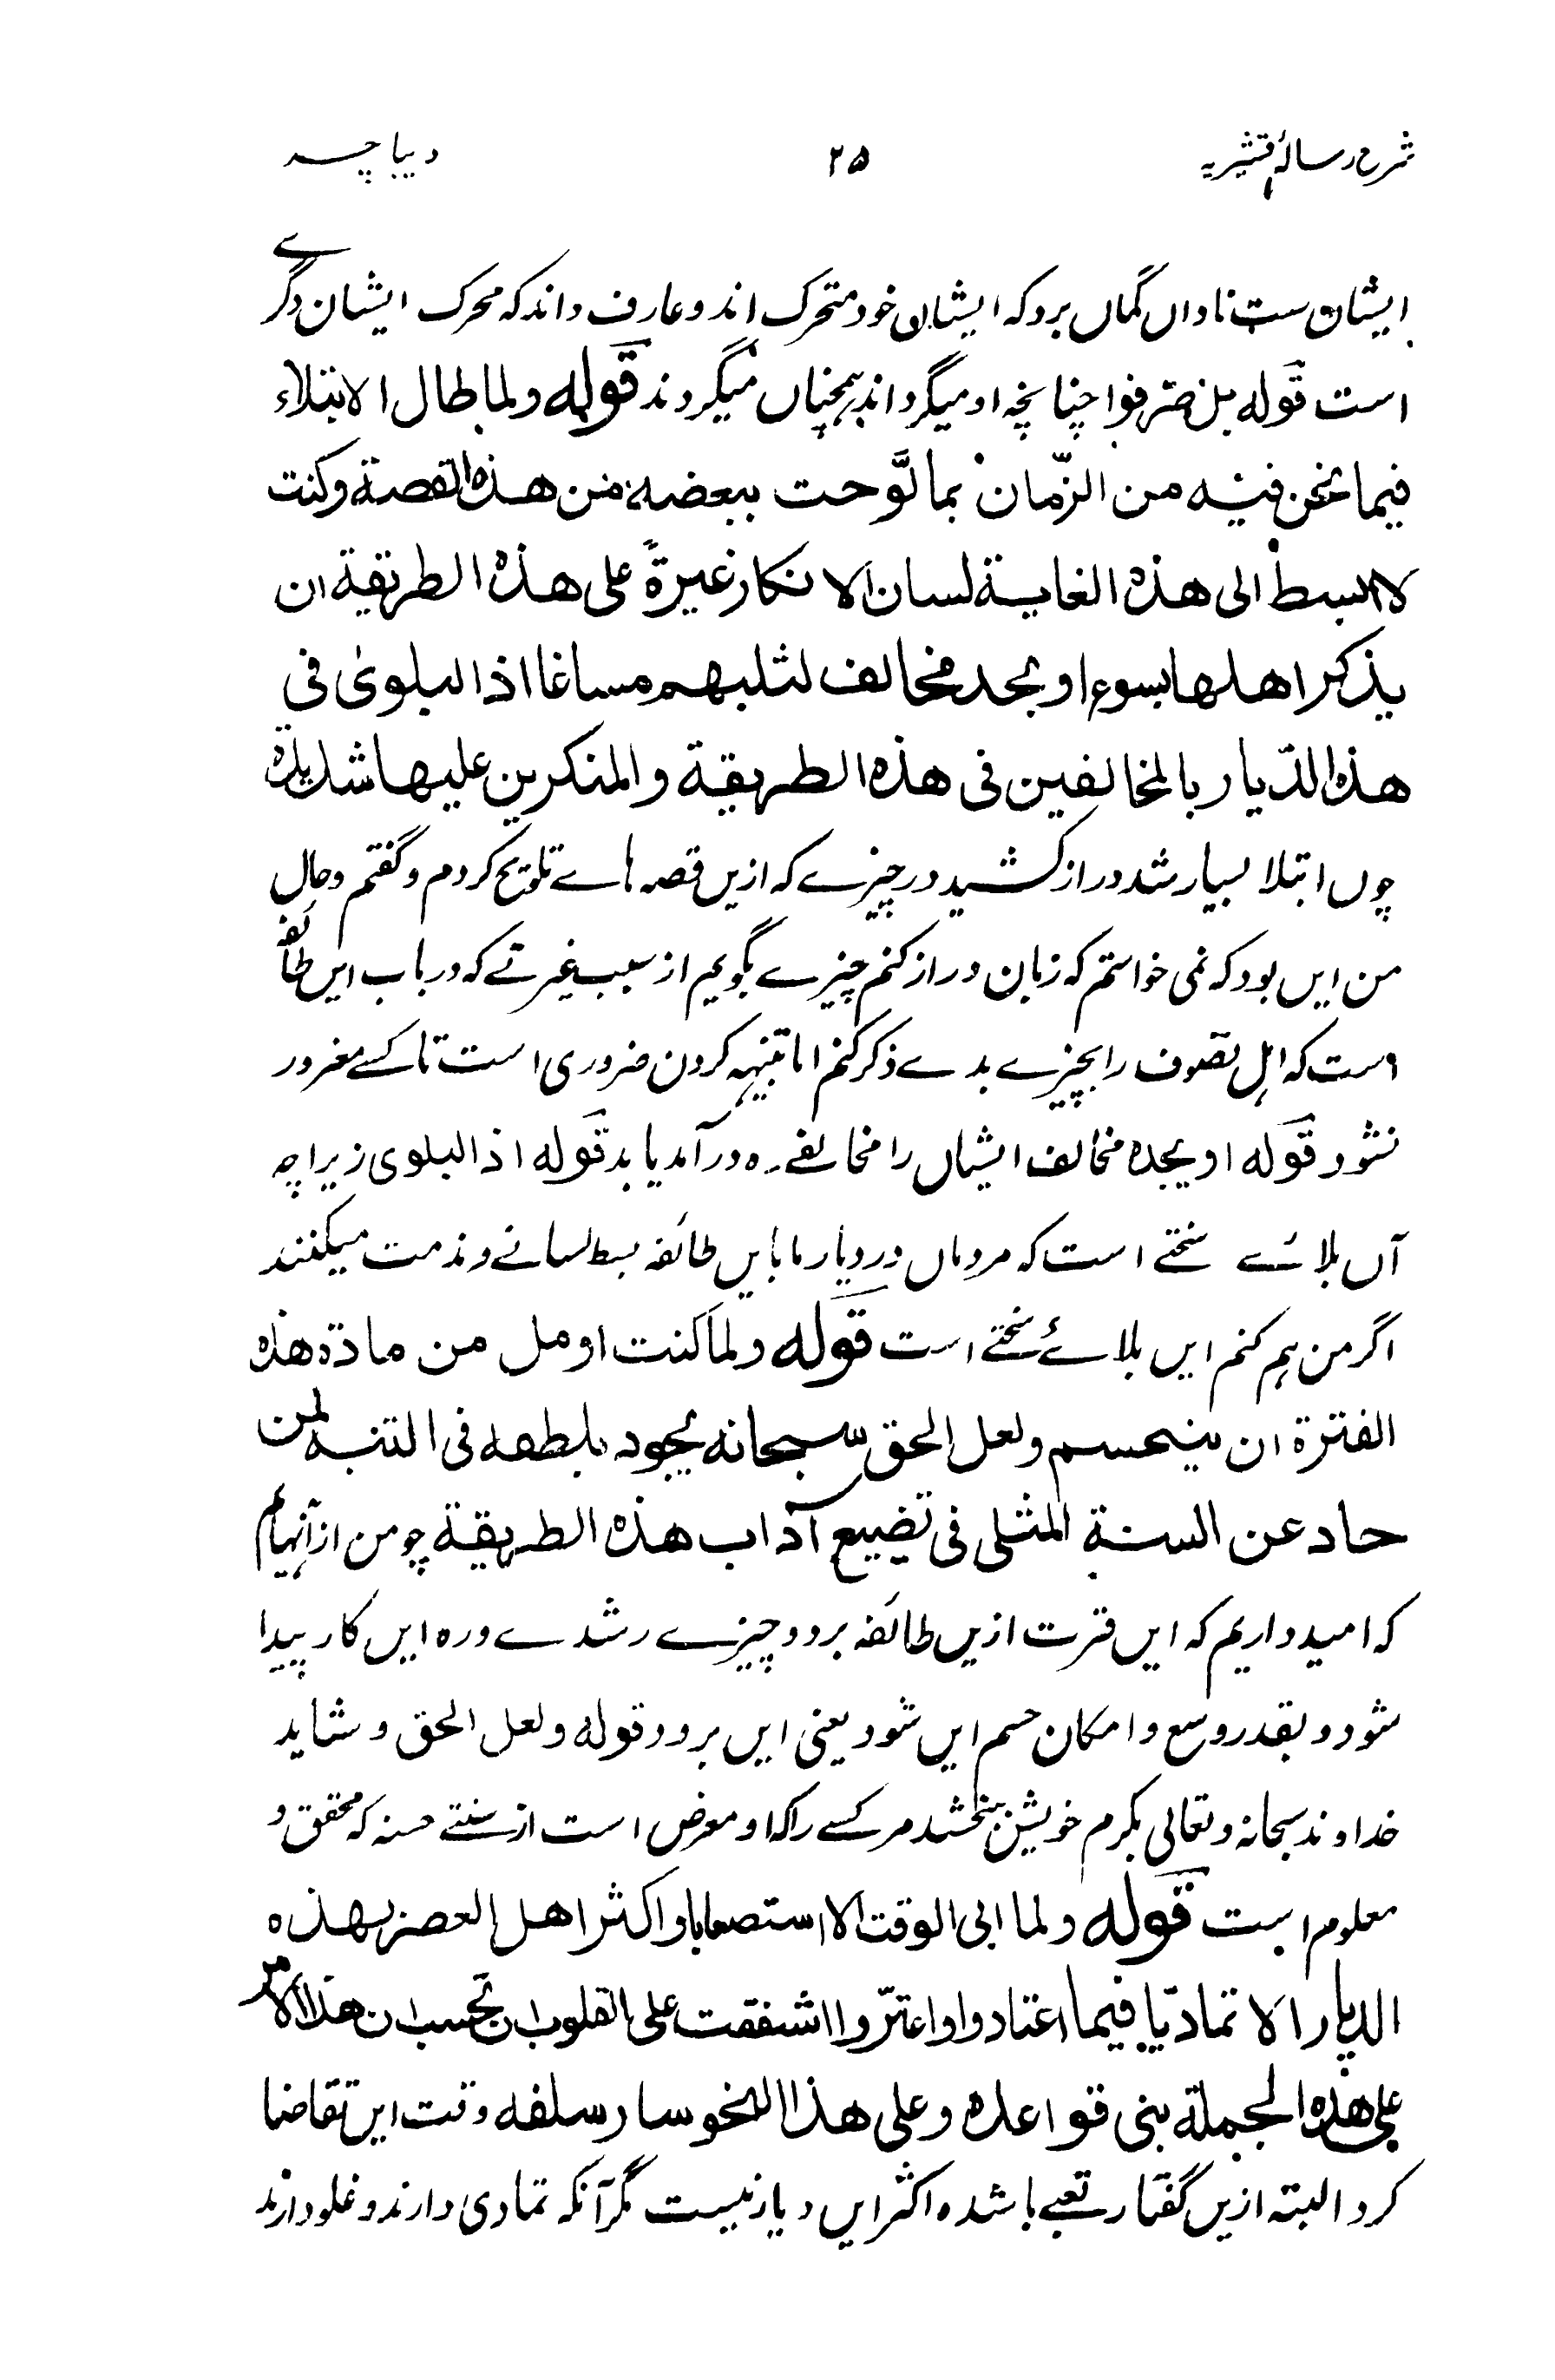 شرح رسالۂ قشیریہ ۲۵ دیباچہ
ایشان ست ناداں گماں برد که ایشاں خود متحرک اند و عارف داند که محرک ایشان دگرے
است قوله بل صرفوا چنانچه او میگرداند همچناں میگردند قوله ولما طال الابتلاء
فیما نحن فیه من الزّمان بما لوّحت ببعضه من هذه القصة وکنت
لا ابسط الی هذه الغایة لسان الانکار غیرةً علی هذه الطریقة ان
یذکر اهلها بسوء او یجد مخالف لثلبهم مساغا اذ البلویٰ فی
هذه الدّیار بالمخالفین فی هذه الطریقة والمنکرین علیها شدیدة
چوں ابتلا بسیار شد دراز کشید در چیزے که ازیں قصه هاے تلویح کردم و گفتم و حال
من ایں بود که نمی خواستم که زبان دراز کنم چیزے بگویم از سبب غیرتے که در باب ایں طائفه
است که اهل تصوف را بچیزے بدے ذکر کنم اما تنبیهه کردن ضروری است تا کسے مغرور
نشود قوله او یجده مخالف ایشاں را مخالفے ره درآمد یابد قوله اذ البلوی زیراچه
آں بلائے سختے است که مردماں در دیار ما بایں طائفه بسط لسانے و مذمت میکنند
اگر من هم کنم ایں بلائے سختے است قوله ولما کنت اومل من مادة هذه
الفترة ان ینحسم ولعل الحق سبحانه یجود بلطفه فی التنبه لمن
حاد عن السنة المثلی فی تضییع آداب هذه الطریقة چو من از آنهایم
که امید داریم که ایں فترت ازیں طائفه برد و چیزے رشدے دره ایں کار پیدا
شود و بقدر وسع و امکان حسم ایں شود یعنی ایں برود قوله ولعل الحق و شاید
خداوند سبحانه و تعالی بکرم خویش بخشد مر کسے را که او معرض است از سنتے حسنه که محقق و
معلوم است قوله ولما ابی الوقت الا استصعابا واکثر اهل العصر بهذه
الدیار الا تمادیّا فیما اعتادوا واعتزّوا اشفقت علی القلوب ان تحسب ان هذا الامر
علی هذه الجملة بنی قواعده وعلی هذا النحو سار سلفه وقت ایں تقاضا
کرد البته ازیں گفتار تعبے باشده اکثر ایں دیار نیست مگر آنکه تمادی دارند و غلو دارند